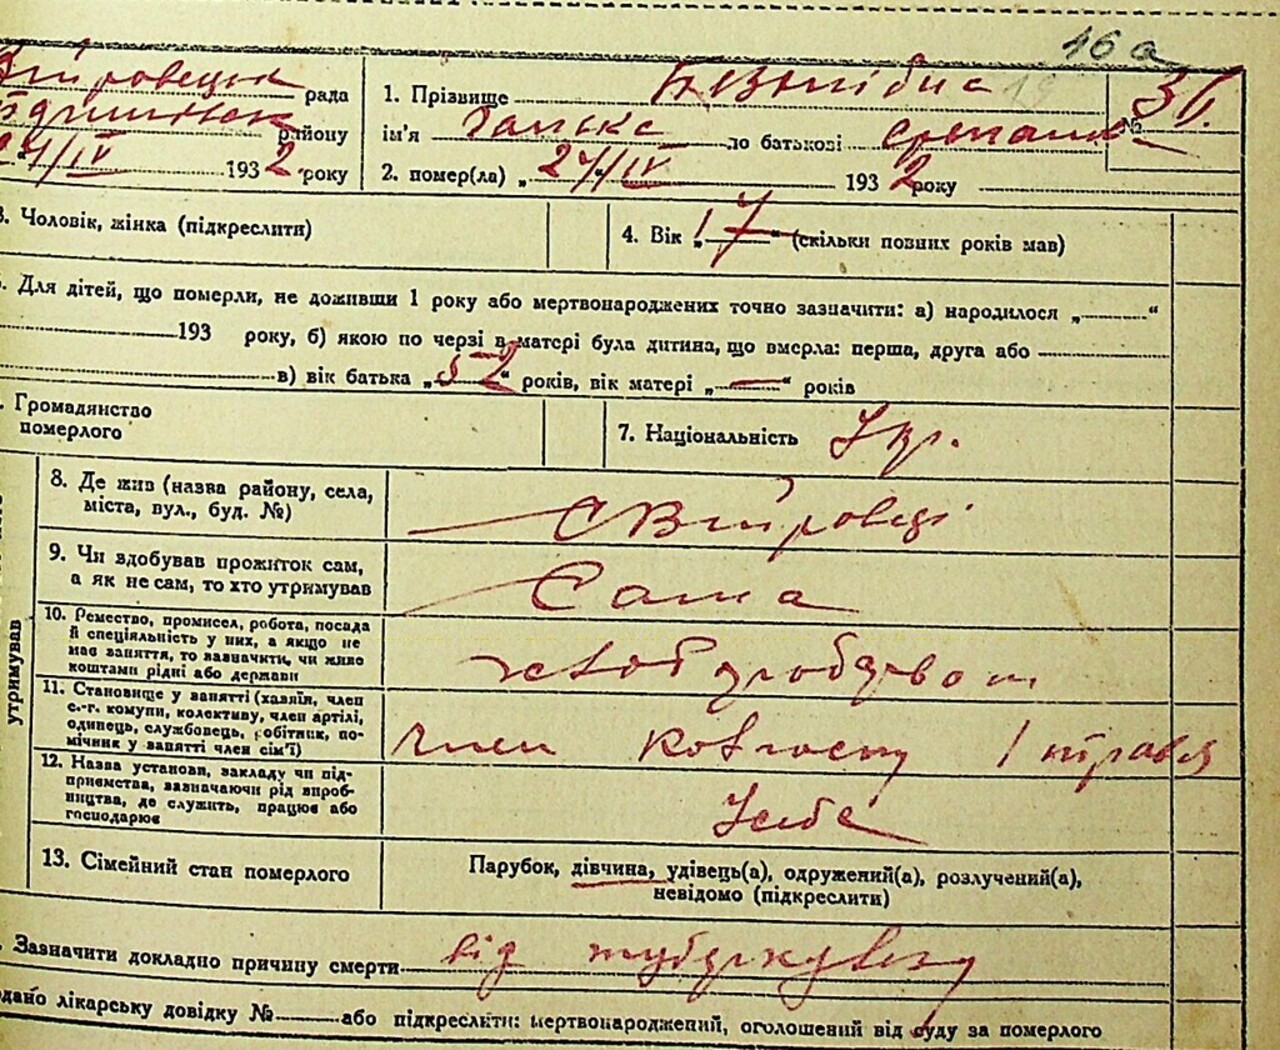 16 а
рада 1. Прізвище № 36.
району ім'я по батькові
27/IV 1932 року 2. помер(ла) „27/IV 1932 року
3. Чоловік, жінка (підкреслити) 4. Вік „17“ (скільки повних років мав)
Для дітей, що померли, не доживши 1 року або мертвонароджених точно зазначити: а) народилося „ “
193 року, б) якою по черзі в матері була дитина, що вмерла: перша, друга або
в) вік батька „52“ років, вік матері „—“ років
Громадянство
померлого
7. Національність Укр.
8. Де жив (назва району, села,
міста, вул., буд. №)
9. Чи вдобував прожиток сам,
а як не сам, то хто утримував
Сама
10. Ремество, промисел, робота, посада
й спеціяльність у них, а якщо не
має заняття, то зазначити, чи живе
коштами рідні або держави
11. Становище у занятті (хазяїн, член
с.-г. комуни, колективу, член артілі,
одинець, службовець, робітник, по-
мічник у занятті член сім'ї)
член колгоспу
12. Назва установи, закладу чи під-
приємства, зазначаючи рід вироб-
ництва, де служить, працює або
господарює
У себе
13. Сімейний стан померлого
Парубок, дівчина, удівець(а), одружений(а), розлучений(а),
невідомо (підкреслити)
утримував
Зазначити докладно причину смерти від туберкульозу
лікарську довідку № або підкреслити: мертвонароджений, оголошений від суду за померлого